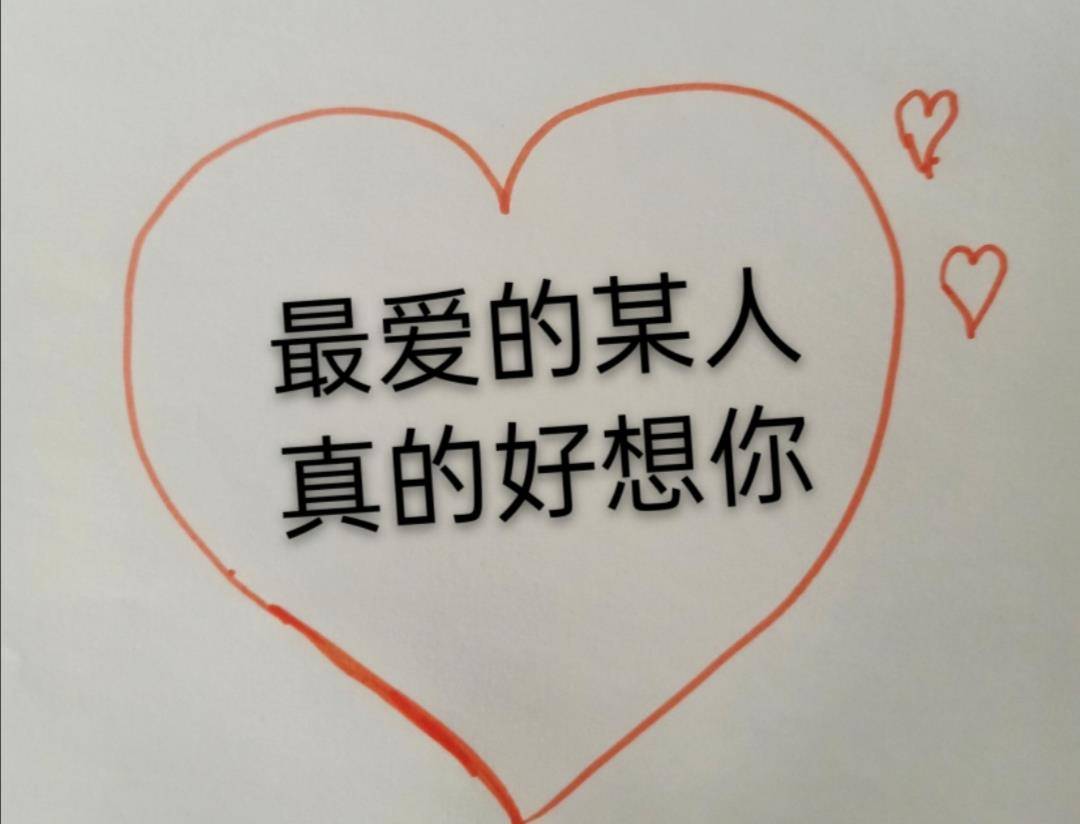 最爱的某人
真的好想你